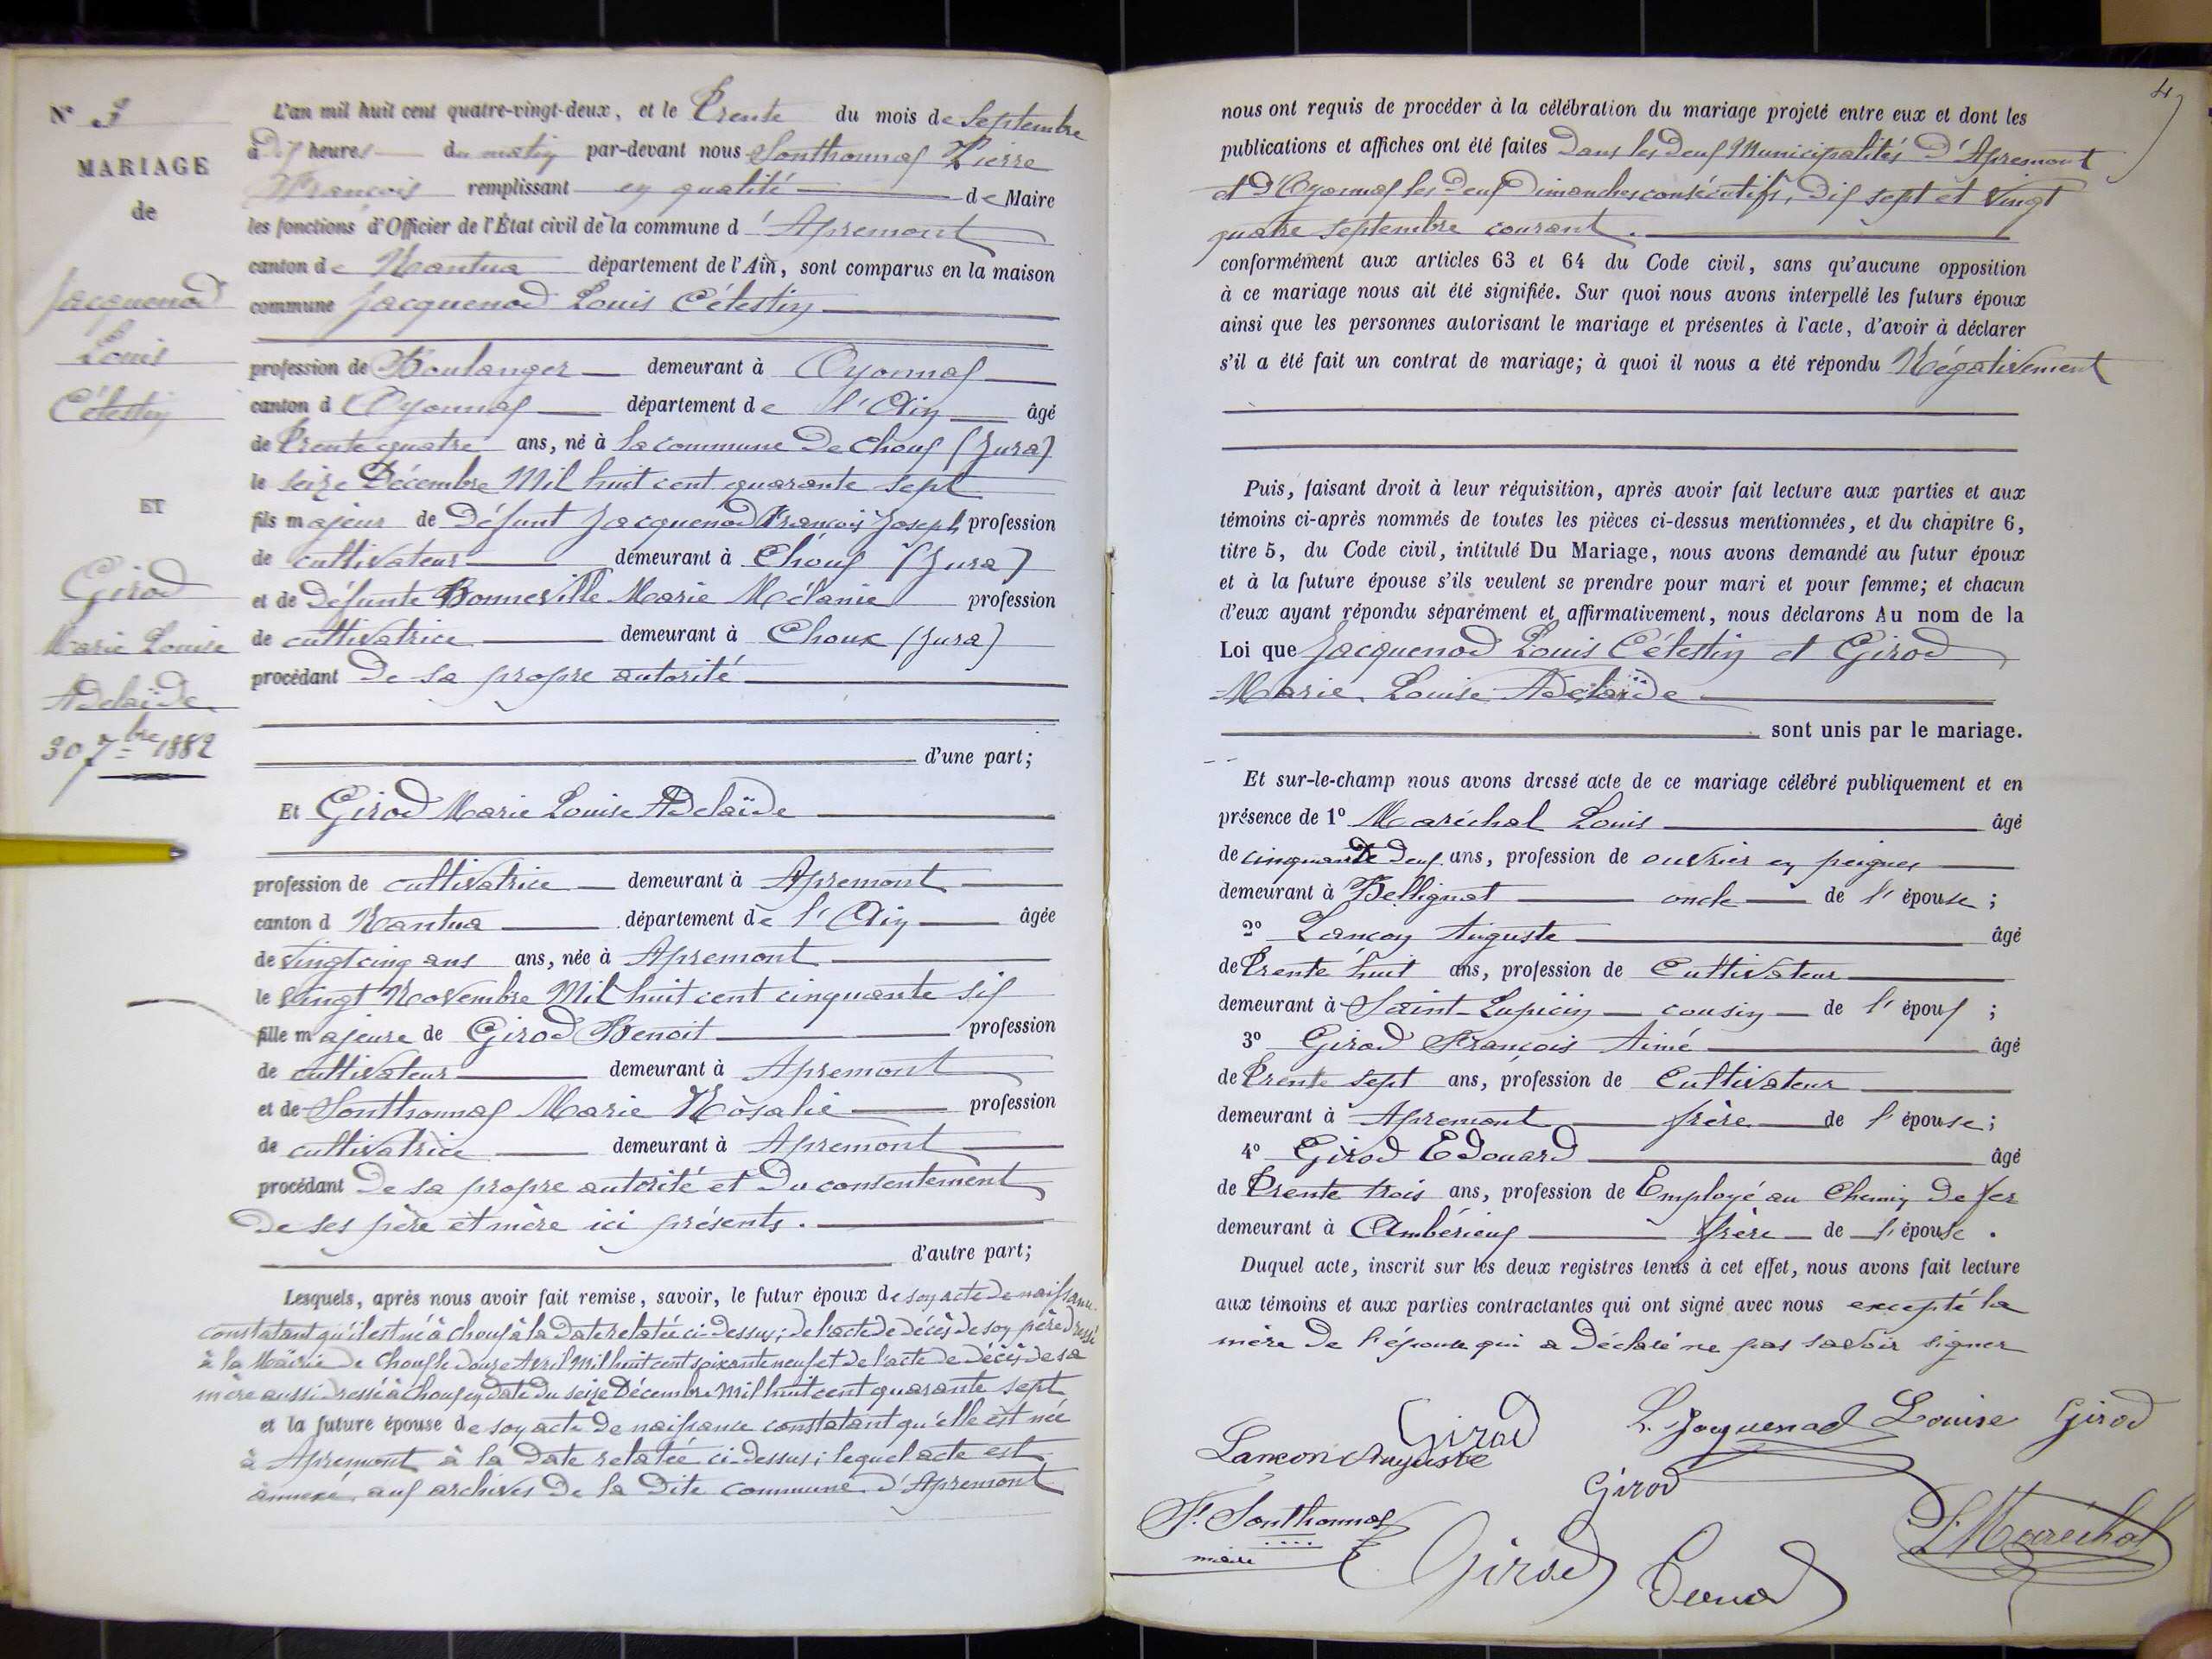 N° 3
MARIAGE
de
Jacquenod
Louis
Célestin
ET
Girod
Marie Louise
Adelaïde
30 7bre 1882
L'an mil huit cent quatre-vingt-deux, et le Trente du mois de Septembre
à Dix heures du matin par-devant nous Sonthonnax Pierre
François remplissant en qualité de Maire
les fonctions d'Officier de l'État civil de la commune d'Apremont
canton de Nantua département de l'Ain, sont comparus en la maison
commune Jacquenod Louis Célestin
profession de Boulanger demeurant à Oyonnax
canton d Oyonnax département de l'Ain âgé
de Trente quatre ans, né à la commune De Choux (Jura)
le seize Décembre Mil huit cent quarante sept
fils majeur de Défunt Jacquenod François Joseph profession
de cultivateur demeurant à Choux (Jura)
et de Défunte Bonneville Marie Mélanie profession
de cultivatrice demeurant à Choux (Jura)
procédant De sa propre autorité
d'une part;
Et Girod Marie Louise Adelaïde
profession de cultivatrice demeurant à Apremont
canton d Nantua département de l'Ain âgée
de vingt cinq ans ans, née à Apremont
le vingt Novembre Mil huit cent cinquante six
fille majeure de Girod Benoit profession
de cultivateur demeurant à Apremont
et de Sonthonnax Marie Rosalie profession
de cultivatrice demeurant à Apremont
procédant De sa propre autorité et Du consentement
De ses père et mère ici présents.
d'autre part;
Lesquels, après nous avoir fait remise, savoir, le futur époux de son acte de naissance
constatant qu'il est né à Choux à la date relatée ci-dessus; de l'acte de décès de son père dressé
à la Mairie de Choux le douze Avril Mil huit cent soixante neuf et de l'acte de décès de sa
mère aussi dressé à Choux en date du seize Décembre Mil huit cent quarante sept
et la future épouse de son acte de naissance constatant qu'elle est née
à Apremont à la date relatée ci-dessus; lequel acte est
annexé aux archives De la Dite commune d'Apremont
4
nous ont requis de procéder à la célébration du mariage projeté entre eux et dont les
publications et affiches ont été faites Dans les Deux Municipalités D'Apremont
et D'Oyonnax les Deux Dimanches consécutifs, Dix sept et vingt
quatre septembre courant.
conformément aux articles 63 et 64 du Code civil, sans qu'aucune opposition
à ce mariage nous ait été signifiée. Sur quoi nous avons interpellé les futurs époux
ainsi que les personnes autorisant le mariage et présentes à l'acte, d'avoir à déclarer
s'il a été fait un contrat de mariage; à quoi il nous a été répondu Négativement
Puis, faisant droit à leur réquisition, après avoir fait lecture aux parties et aux
témoins ci-après nommés de toutes les pièces ci-dessus mentionnées, et du chapitre 6,
titre 5, du Code civil, intitulé Du Mariage, nous avons demandé au futur époux
et à la future épouse s'ils veulent se prendre pour mari et pour femme; et chacun
d'eux ayant répondu séparément et affirmativement, nous déclarons Au nom de la
Loi que Jacquenod Louis Célestin et Girod
Marie Louise Adelaïde
sont unis par le mariage.
Et sur-le-champ nous avons dressé acte de ce mariage célébré publiquement et en
présence de 1° Maréchal Louis âgé
de cinquante Deux ans, profession de ouvrier en peignes
demeurant à Bellignat oncle de l'épouse;
2° Lançon Auguste âgé
de Trente huit ans, profession de Cultivateur
demeurant à Saint-Lupicin cousin de l'époux;
3° Girod François Aimé âgé
de Trente sept ans, profession de Cultivateur
demeurant à Apremont frère de l'épouse;
4° Girod Edouard âgé
de Trente trois ans, profession de Employé au Chemin De fer
demeurant à Ambérieux frère de l'épouse.
Duquel acte, inscrit sur les deux registres tenus à cet effet, nous avons fait lecture
aux témoins et aux parties contractantes qui ont signé avec nous excepté la
mère De l'épouse qui a Déclaré ne pas savoir signer
Girod L. Jacquenod Louise Girod
Lancon Auguste
Girod
F. Sonthonnax
maire
Girod
L. Maréchal